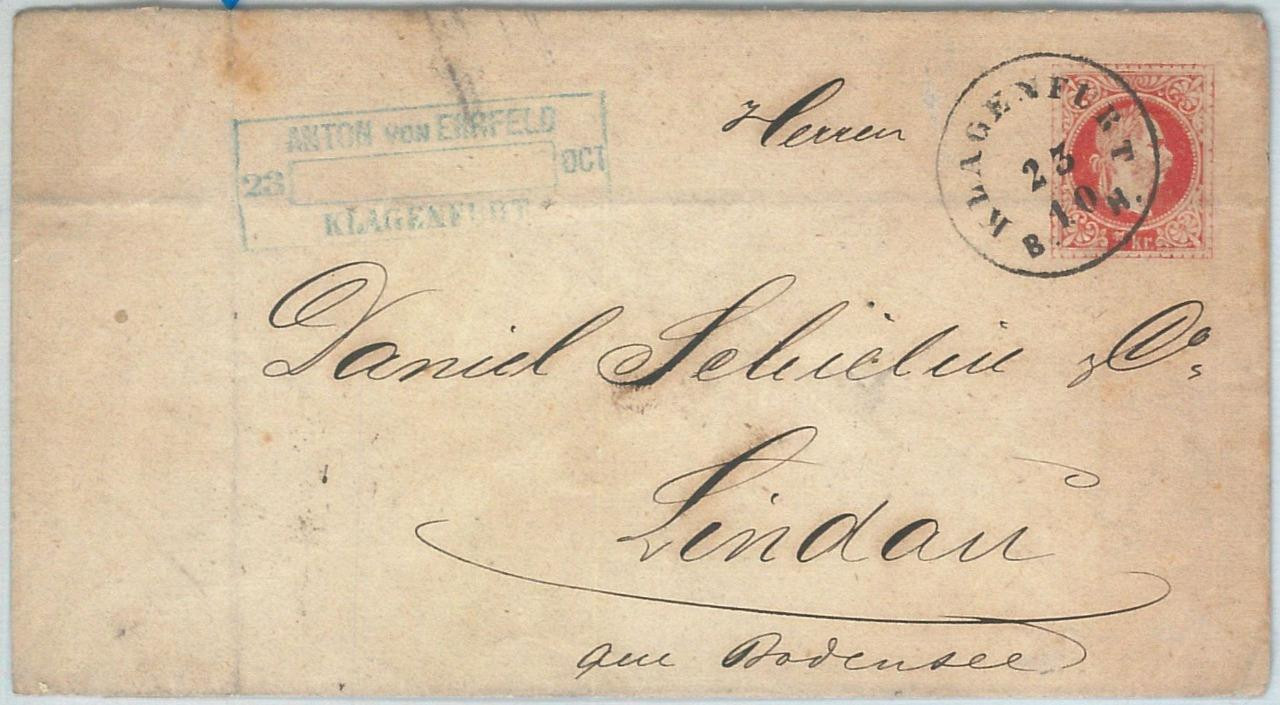 ANTON VON EHRFELD
23 OCT
KLAGENFURT
KLAGENFURT
23
10
B. H.
5 kr.
Herren
Daniel Schielin & Co.
Lindau
am Bodensee